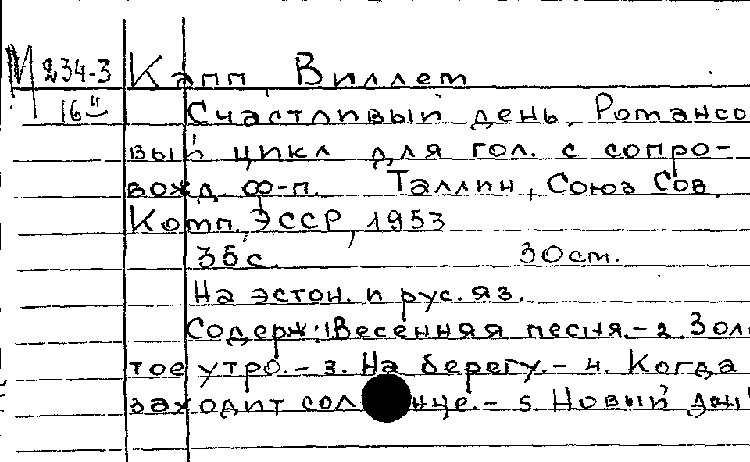 М 234-3 Капп, Виллем
16" Счастливый день. Романсо
вый цикл для гол. с сопро-
вожд. ф-п. Таллин, Союз Сов.
Комп. ЭССР, 1953
36 с. 30 ст.
На эстон. и рус. яз.
Содерж: 1 Весенняя песня. - 2. Золо
тое утро. - 3. На берегу. - 4. Когда
заходит солнце. - 5. Новый день